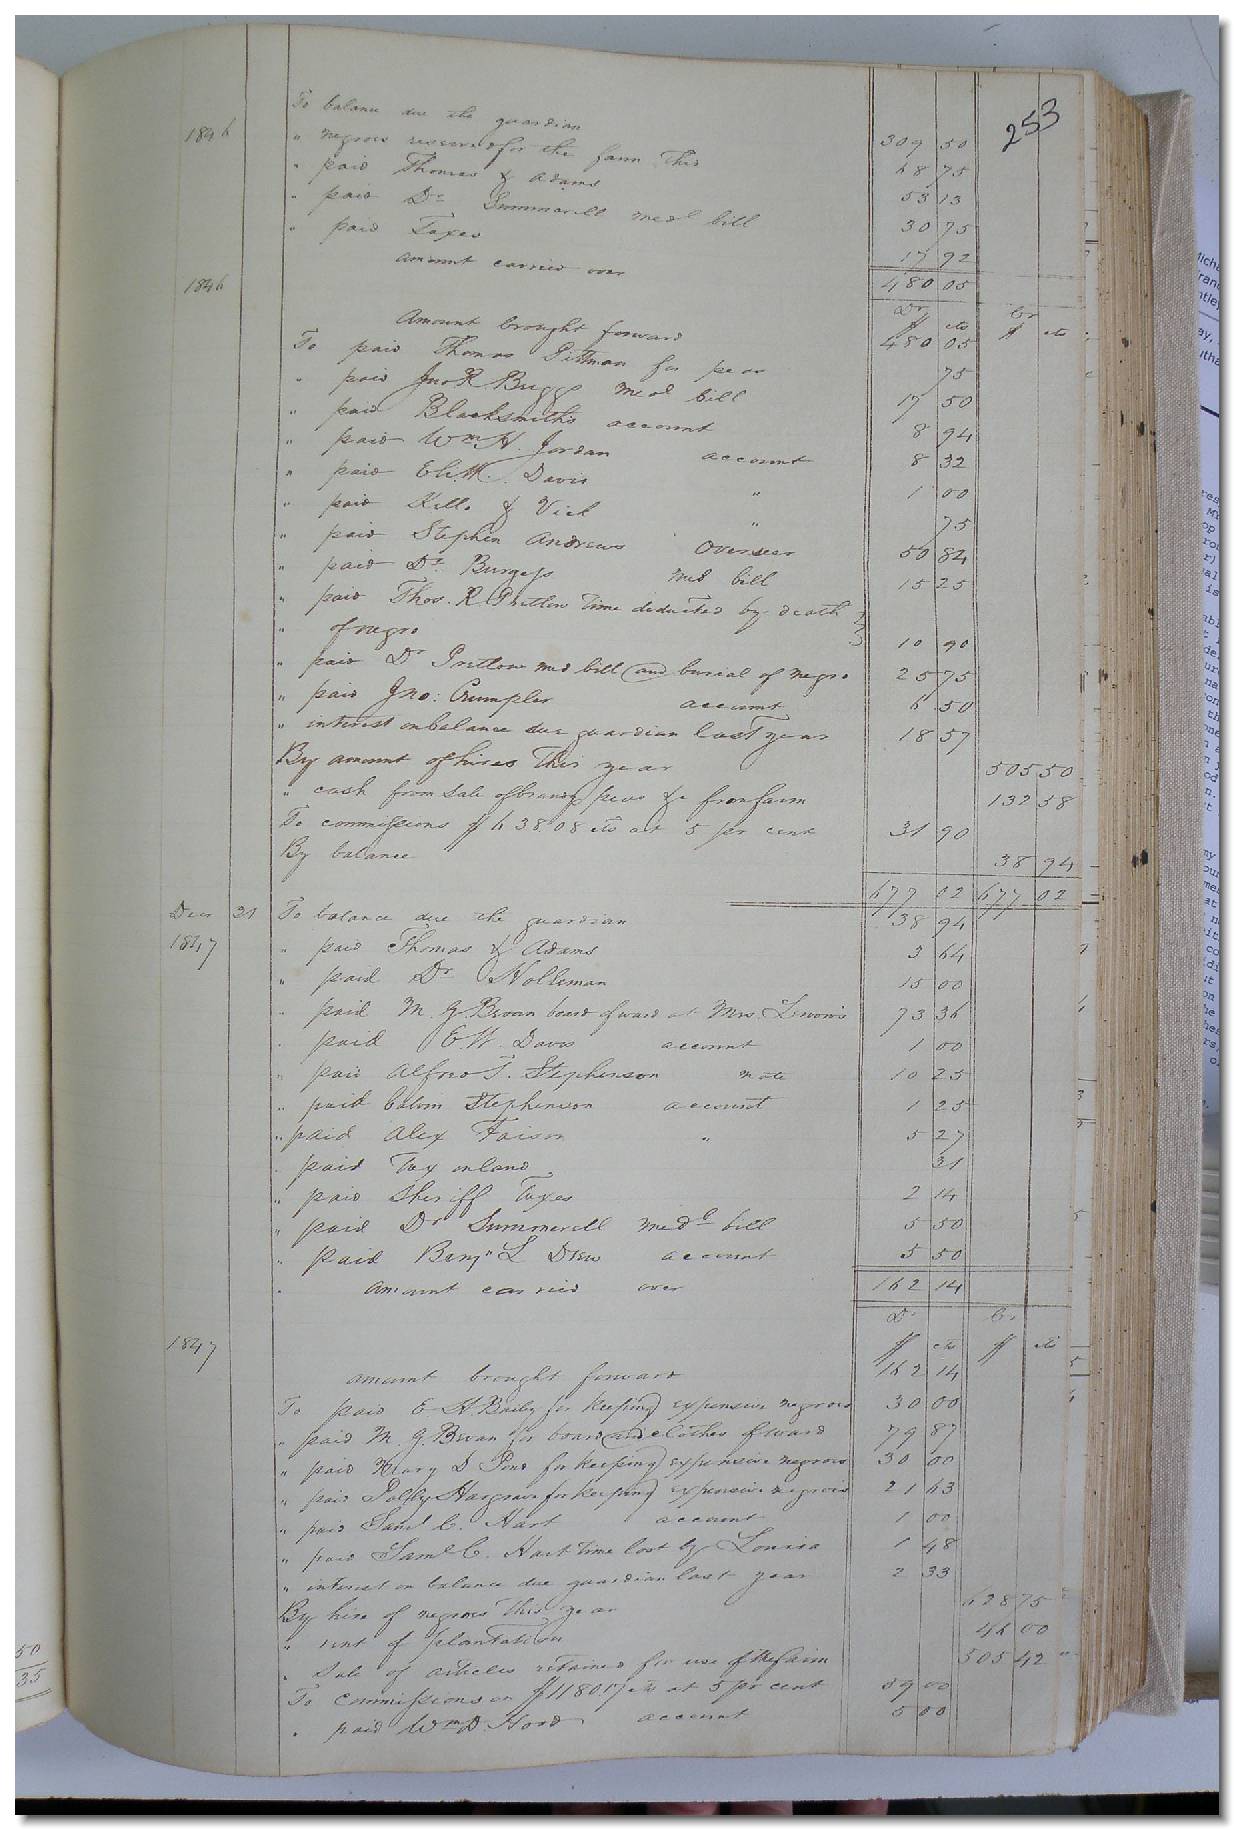 253
1846 To balance due the guardian 309 50
" negroes reserved for the farm this 68 75
" paid Thomas & Adams 53 13
" paid Dr Summerell medl bill 30 75
" paid Taxes 17 92
amount carried over 480 05
1846 Dr Cr
$ cts $ cts
Amount brought forward 480 05
To paid Thomas Pittman for pear 75
" paid Jno R Briggs Med bill 17 50
" paid Blacksmith's account 8 94
" paid Wm H. Jordan account 8 32
" paid Eli W. Davis " 1 00
" paid Kello & Vick " 75
" paid Stephen Andrews Overseer 50 84
" paid Dr. Burgess Med bill 15 25
" paid Thos. R Pretlow time deducted by death
" of negro 10 90
" paid Dr Pretlow med bill and burial of negro 25 75
" paid Jno: Crumpler account 6 50
" interest on balance due guardian last year 18 57
By amount of hires this year 505 50
" cash from sale of brandy peas &c from farm 132 58
To commissions $ 638.08 cts at 5 pr cent 31 90
By balance 38 94
677 02 677 02
Decr 31 To balance due the guardian 38 94
1847 " paid Thomas & Adams 3 64
" paid Dr Holleman 15 00
" paid M. G. Bevan board of ward at Mrs 73 36
" paid E W. Davis account 1 00
" paid Alfred T. Stephenson note 10 25
" paid Calvin Stephenson account 1 25
" paid Alex Faison " 5 27
" paid Tax on land 31
" paid Sheriff Taxes 2 14
" paid Dr Summerell medl bill 5 50
" paid Benjn L Drew account 5 50
" amount carried over 162 14
Dr Cr
1847 $ cts $ cts
amount brought forward 162 14
To paid E H. Bailey for keeping expensive negroes 30 00
" paid M. G. Bevan for board and clothes of ward 79 87
" paid Henry D Pond for keeping expensive negroes 30 00
" paid Polly Hargrave for keeping expensive negroes 21 63
" paid Saml C. Hart account 1 00
" paid Saml C. Hart time lost by Louisa 1 48
" interest on balance due guardian last year 2 33
By hire of negroes this year 628 75
" rent of plantation 46 00
" Sale of articles retained for use of the farm 505 42
To commissions on $1180.17 cts at 5 pr cent 59 00
" paid Wm D. Hood account 5 00
50
35